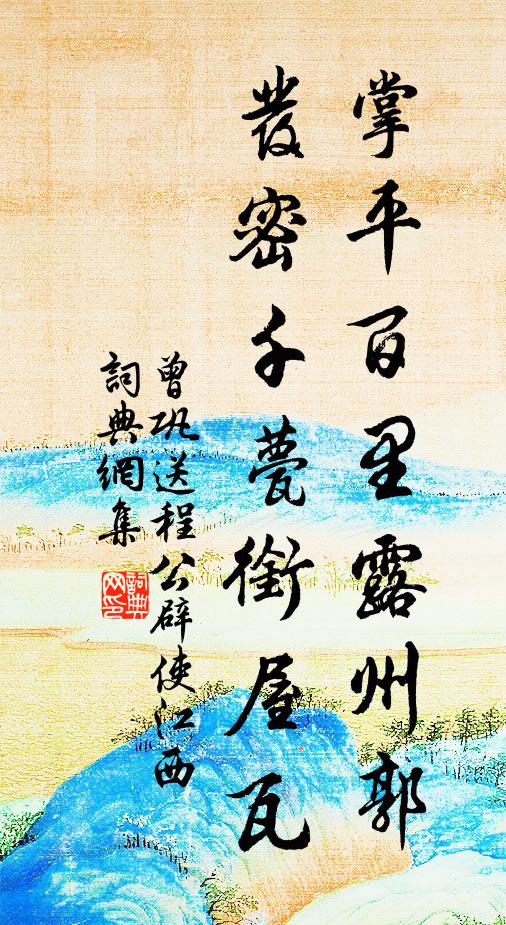 掌平百里露州郭
叢密千甍銜屋瓦
曾巩送程公辟使江西
詞典網集
詞典
网印